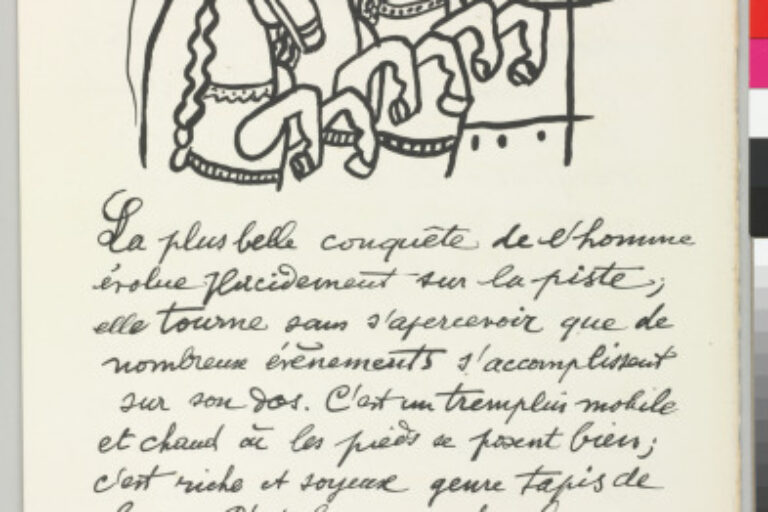 La plus belle conquête de l'homme
évolue placidement sur la piste;
elle tourne sans s'apercevoir que de
nombreux événements s'accomplissent
sur son dos. C'est un tremplin mobile
et chaud où les pieds se posent bien;
c'est riche et soyeux genre tapis de